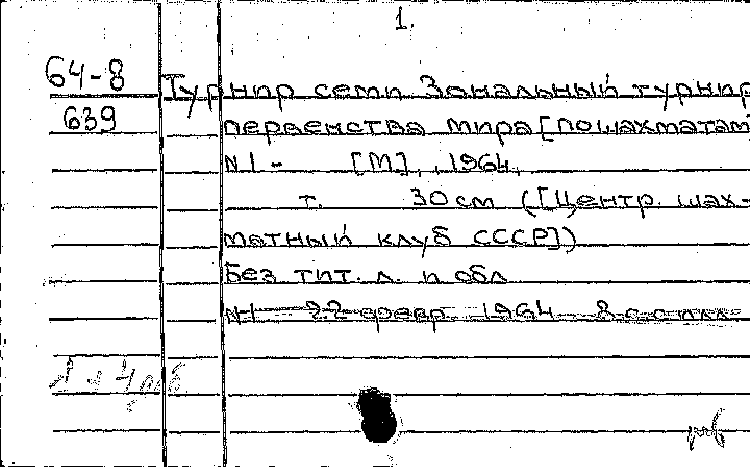 1.
64-8 Турнир семи Зональный турнир
639 первенства мира [по шахматам]
N1- [М], 1964,
т. 30 см ([Центр. шах-
матный клуб СССР])
Без тит. л. и обл
N1 22 февр 1964 8 с с илл